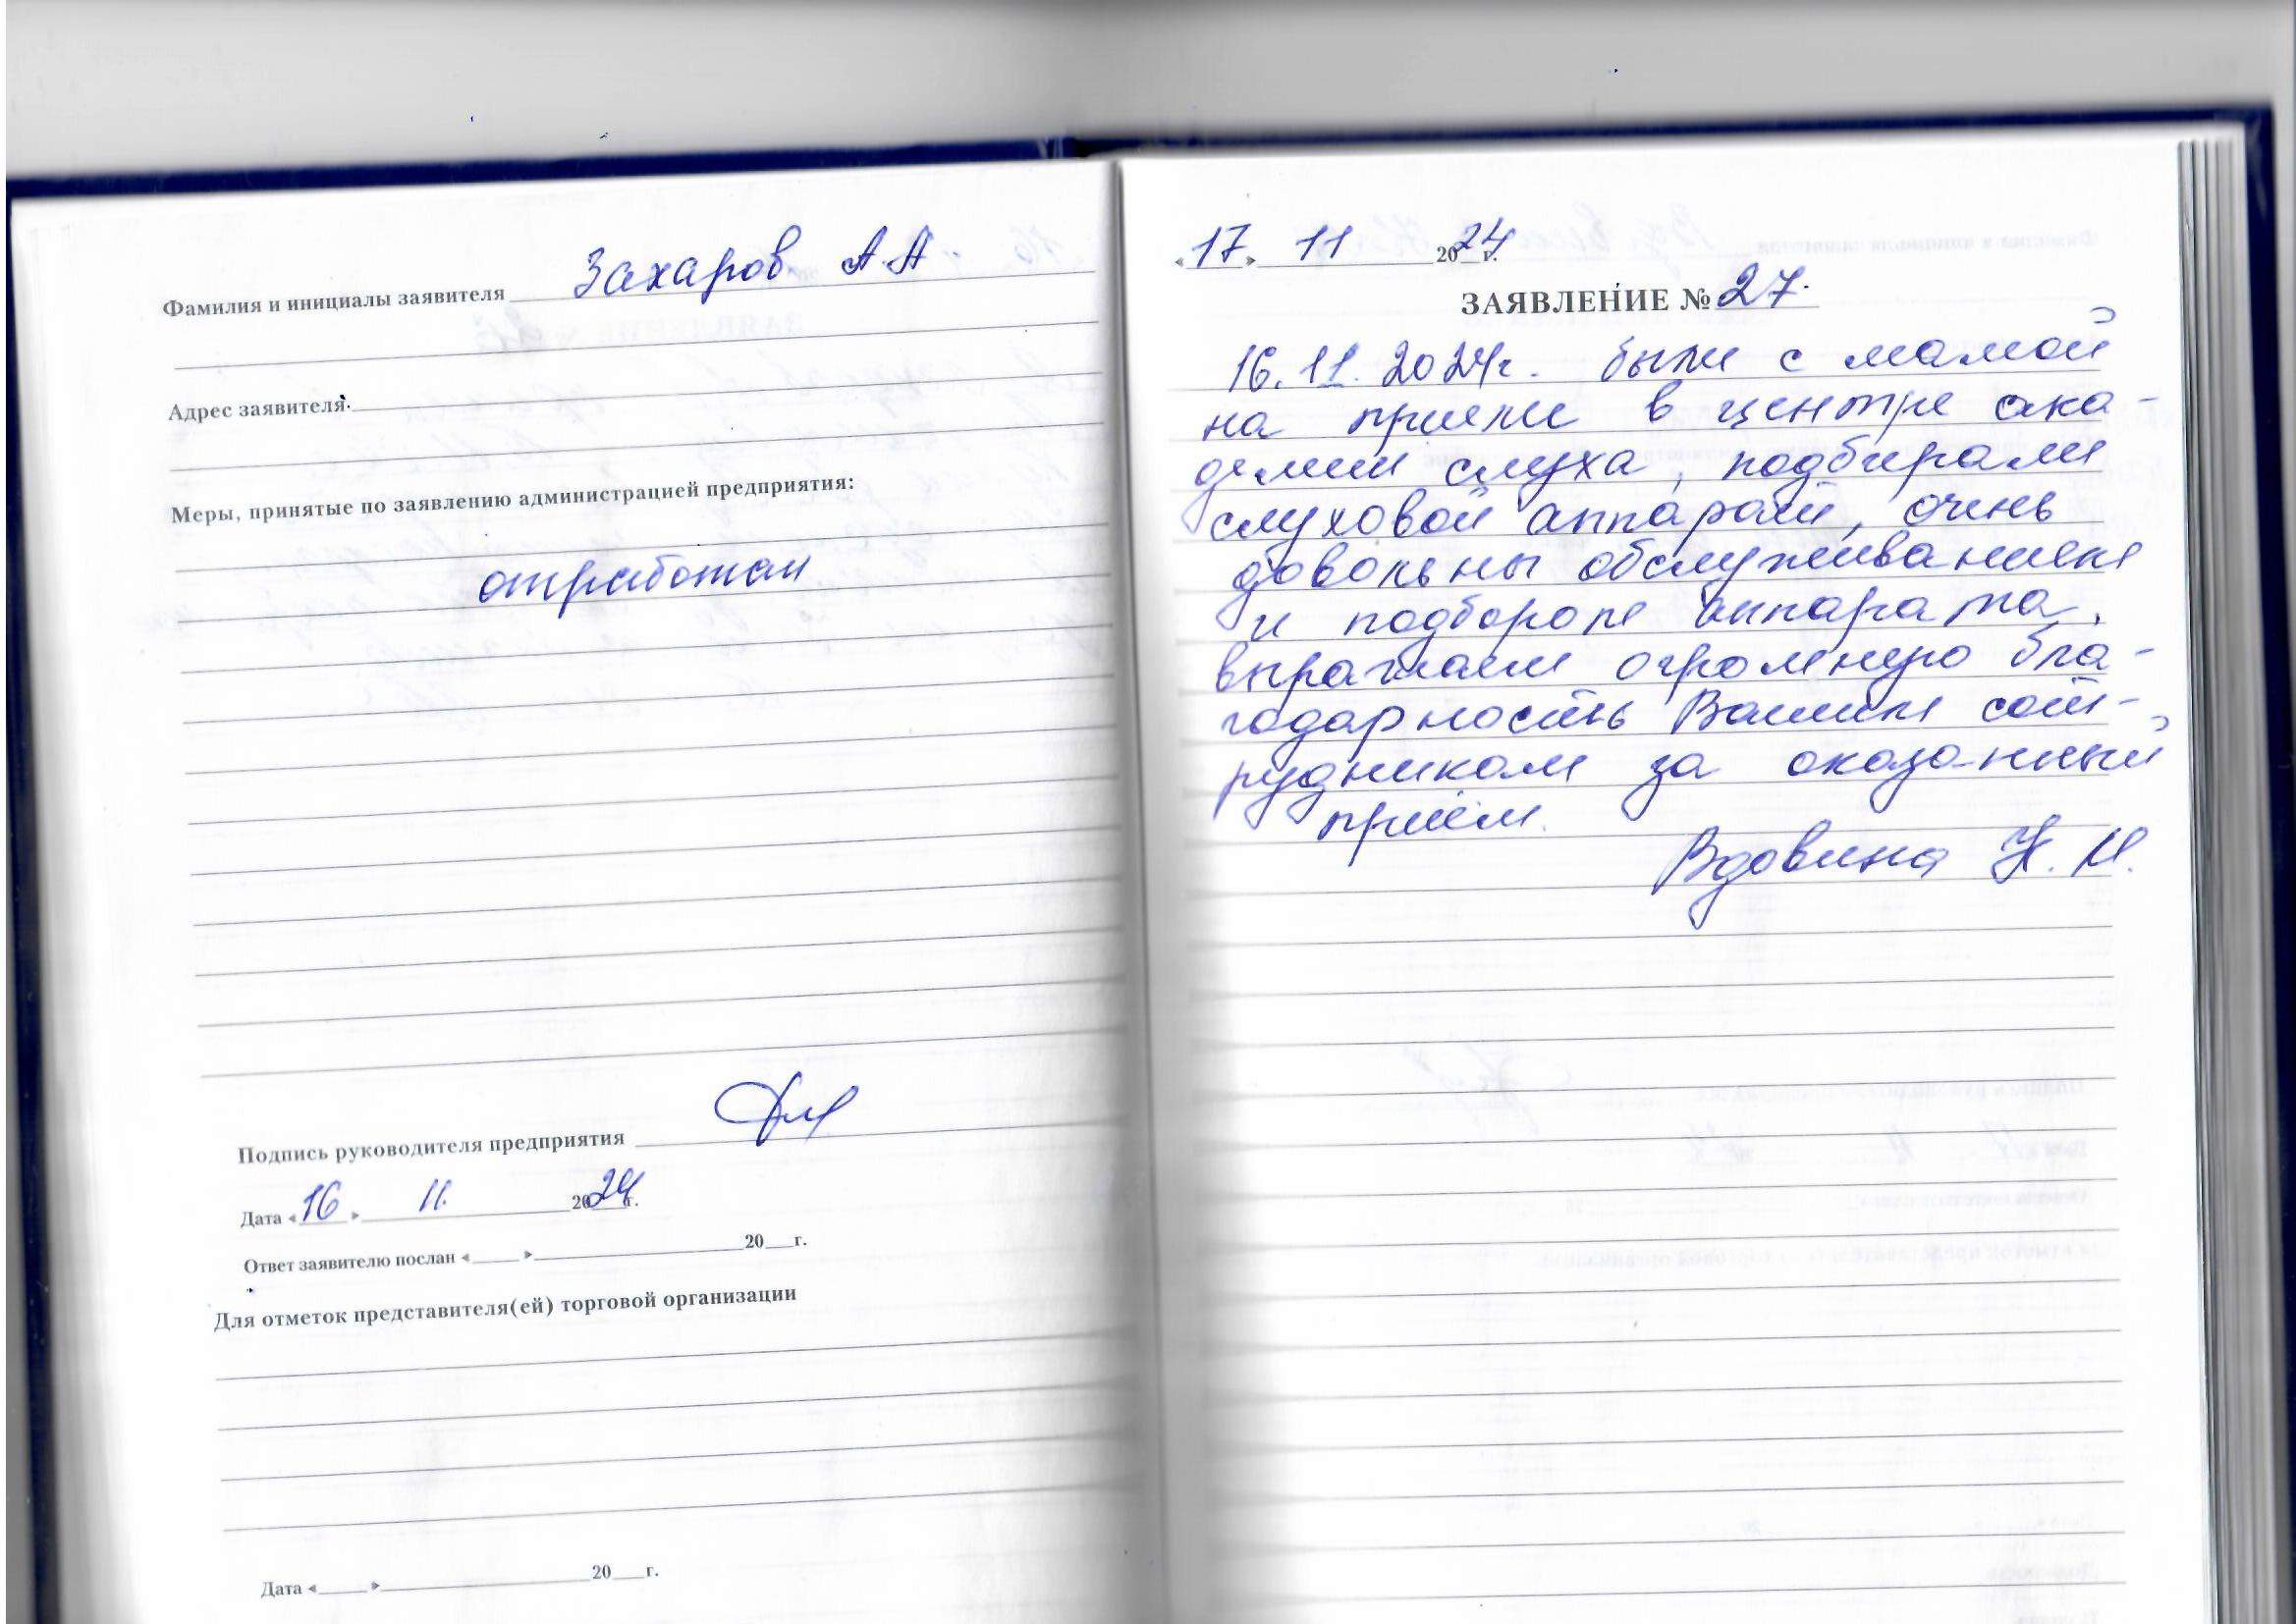 Фамилия и инициалы заявителя Захаров А.А.
Адрес заявителя
Меры, принятые по заявлению администрацией предприятия:
отработан
Подпись руководителя предприятия
Дата «16» 11. 2024г.
Ответ заявителю послан «____»____________20__г.
Для отметок представителя(ей) торговой организации
Дата «____»____________20__г.
«17» 11 2024г.
ЗАЯВЛЕНИЕ № 27.
16.11.2024г. были с мамой
на приеме в центре ака-
демии слуха, подбирали
слуховой аппарат, очень
довольны обслуживанием
и подбором аппарата,
выражаем огромную бла-
годарность Вашим сот-
рудникам за оказанный
приём.
Вдовина Н.И.